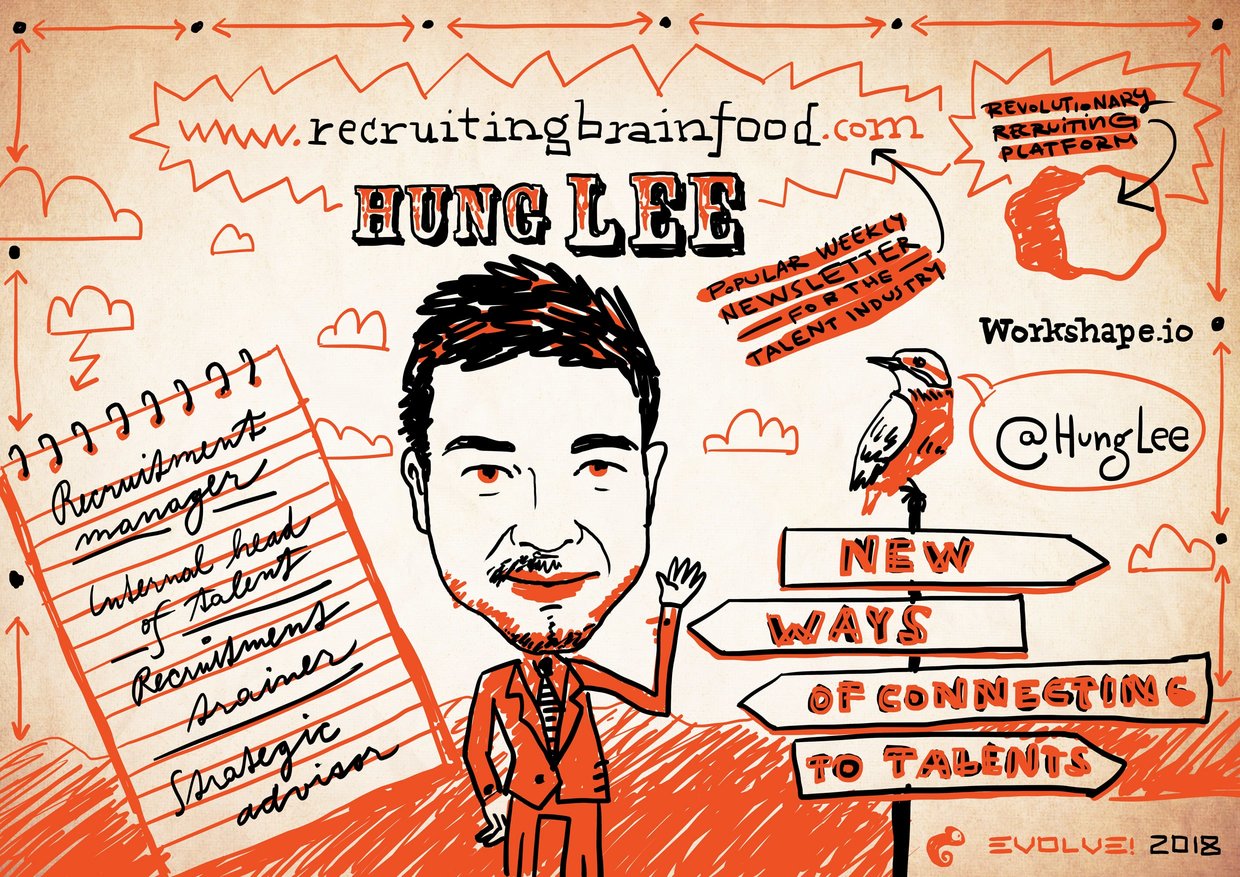 www.recruitingbrainfood.com
HUNG LEE
REVOLUTIONARY
RECRUITING
PLATFORM
POPULAR WEEKLY
NEWSLETTER
FOR THE
TALENT INDUSTRY
Workshape.io
@HungLee
Recruitment
manager
Internal head
of talent
Recruitment
trainer
Strategic
advisor
NEW
WAYS
OF CONNECTING
TO TALENTS
EVOLVE! 2018